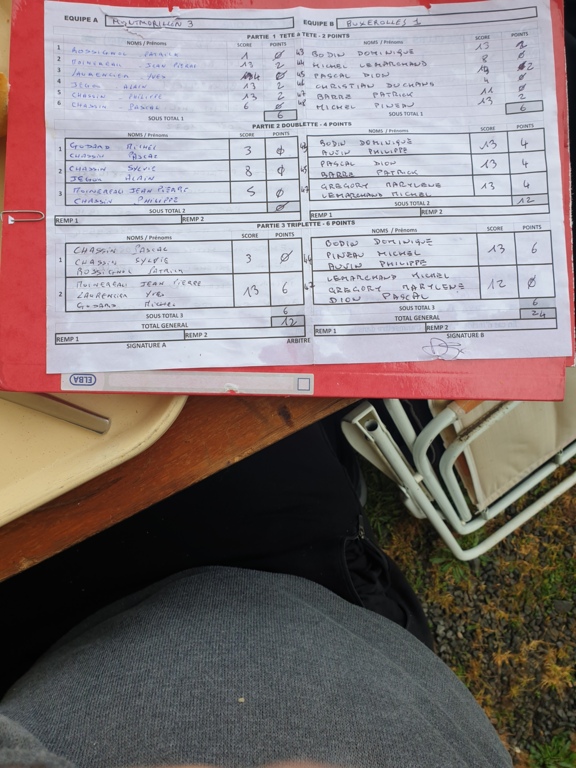 EQUIPE A MONTMORILLON 3 EQUIPE B BUXEROLLES 1
PARTIE 1 TETE A TETE - 2 POINTS
NOMS / Prénoms SCORE POINTS NOMS / Prénoms SCORE POINTS
1 1 0 43 BODIN DOMINIQUE 13 2
2 JEAN PIERRE 13 2 44 MICHEL LEMARCHAND 8 0
3 LAURENCIER YVES 0 45 PASCAL DION 2
4 ALAIN 13 2 46 CHRISTIAN 4 0
5 CHASSIN PHILIPPE 13 2 47 BARRE PATRICK 11 0
6 CHASSIN PASCAL 6 0 48 MICHEL PINEAU 13 2
SOUS TOTAL 1 6 SOUS TOTAL 1 6
PARTIE 2 DOUBLETTE - 4 POINTS
NOMS / Prénoms SCORE POINTS NOMS / Prénoms SCORE POINTS
1 3 0 BODIN DOMINIQUE 13 4
CHASSIN PASCAL AUVIN PHILIPPE
2 CHASSIN SYLVIE 8 0 PASCAL DION 13 4
ALAIN BARRE PATRICK
3 JEAN PIERRE 5 0 GREGORY MARYLENE 13 4
CHASSIN PHILIPPE LEMARCHAND MICHEL
SOUS TOTAL 2 0 SOUS TOTAL 2 12
REMP 1 REMP 2 REMP 1 REMP 2
PARTIE 3 TRIPLETTE - 6 POINTS
NOMS / Prénoms SCORE POINTS NOMS / Prénoms SCORE POINTS
1 CHASSIN PASCAL 3 0 BODIN DOMINIQUE 13 6
CHASSIN SYLVIE PINEAU MICHEL
AUVIN PHILIPPE
2 JEAN PIERRE 13 6 LEMARCHAND MICHEL 12 0
LAURENCIER YVES GREGORY MARYLENE
MICHEL DION PASCAL
SOUS TOTAL 3 6 SOUS TOTAL 3 6
TOTAL GENERAL 12 TOTAL GENERAL 24
REMP 1 REMP 2 REMP 1 REMP 2
SIGNATURE A ARBITRE SIGNATURE B
ELBA